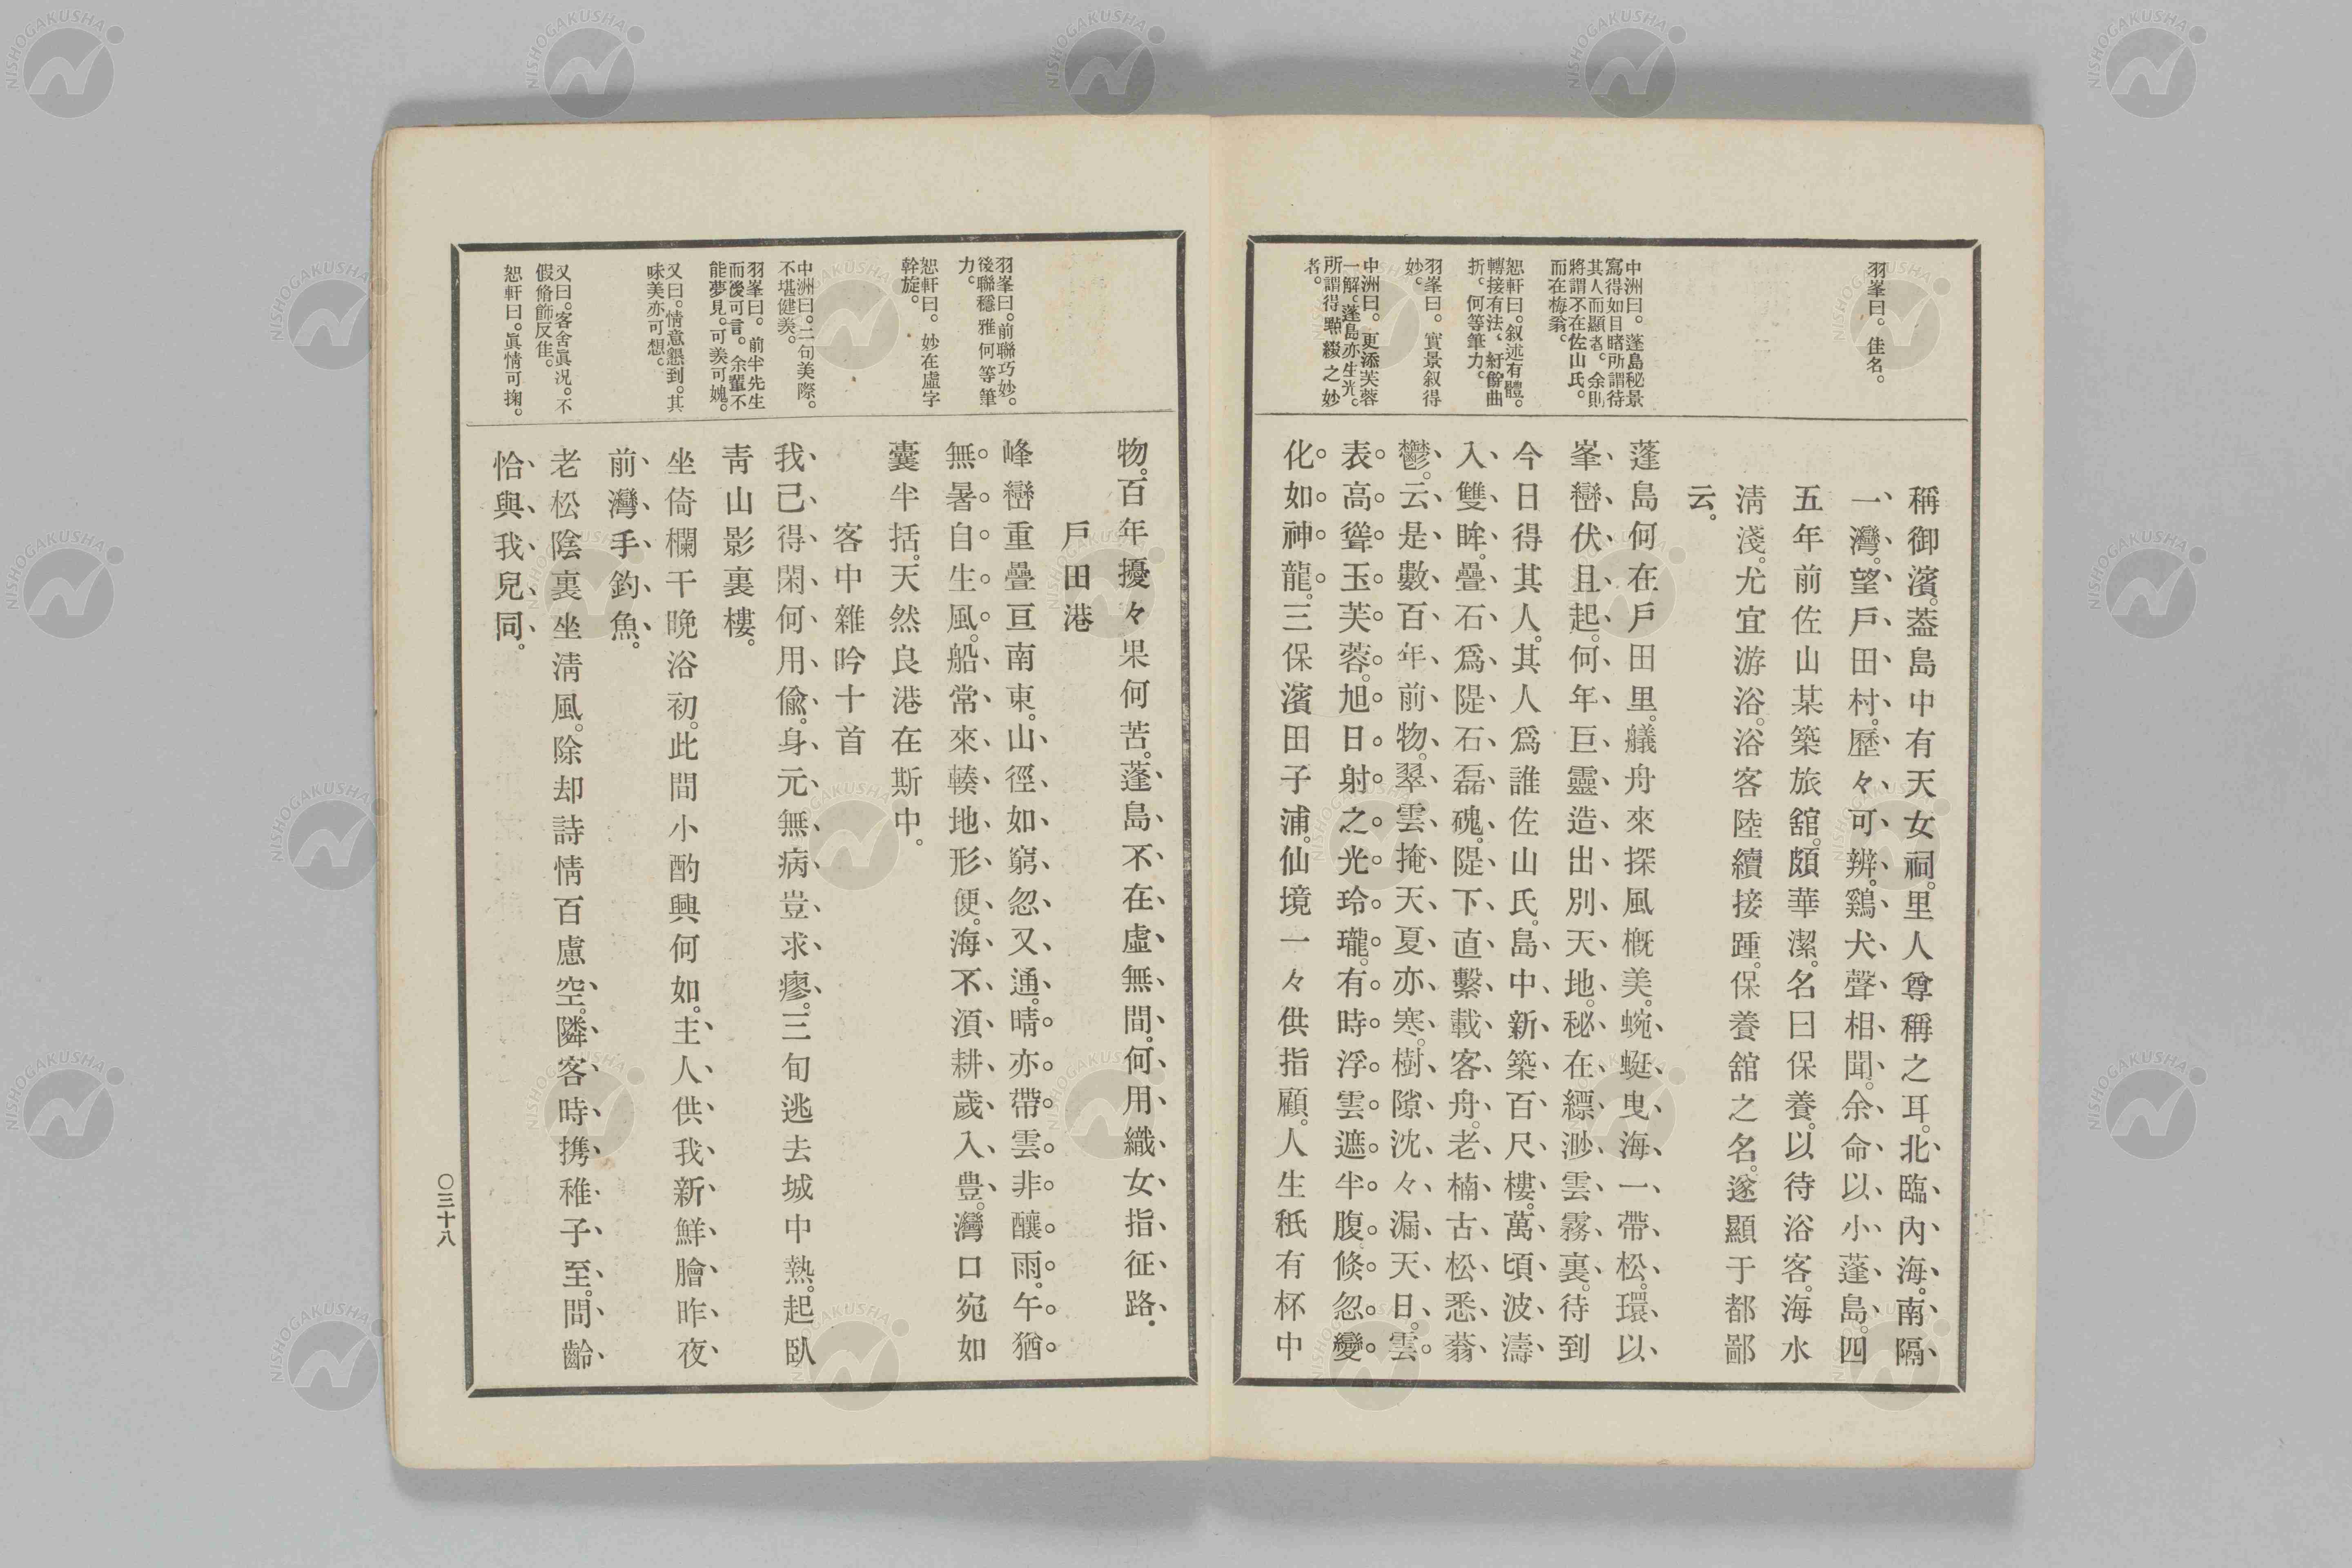 羽峯曰。佳名。
中洲曰。蓬島秘景
寫得如目睹所謂待
其人而顯者。余則
將謂不在佐山氏。
而在梅翁。
恕軒曰。叙述有體。
轉接有法、紆餘曲
折。何等筆力。
羽峯曰。實景叙得
妙。
中洲曰。更添芙蓉
一解。蓬島亦生光。
所謂得點綴之妙
者。
稱御濱。蓋島中有天女祠。里人尊稱之耳。北臨內海。南隔
一灣。望戶田村。歷々可辨。鷄犬聲相聞。余命以小蓬島。四
五年前佐山某築旅舘。頗華潔。名曰保養。以待浴客。海水
淸淺。尤宜游浴。浴客陸續接踵。保養舘之名。遂顯于都鄙
云。
蓬島何在戶田里。艤舟來探風槪美。蜿蜒曳海一帶松。環以
峯巒伏且起。何年巨靈造出別天地。秘在縹渺雲霧裏。待到
今日得其人。其人爲誰佐山氏。島中新築百尺樓。萬頃波濤
入雙眸。疊石爲隄石磊磈。隄下直繫載客舟。老楠古松悉蓊
鬱。云是數百年前物。翠雲掩天夏亦寒。樹隙沈々漏天日。雲
表高聳玉芙蓉。旭日射之光玲瓏。有時浮雲遮半腹倐忽變
化如神龍。三保濱田子浦。仙境一々供指顧。人生秖有杯中
羽峯曰。前聯巧妙。
後聯穩雅何等筆
力。
恕軒曰。妙在虛字
斡旋。
中洲曰。二句美際。
不堪健羨。
羽峯曰。前半先生
而後可言。余輩不
能夢見。可羨可媿。
又曰。情意懇到。其
味美亦可想。
又曰。客舍眞况。不
假脩飾反佳。
恕軒曰。眞情可掬。
物。百年擾々果何苦。蓬島不在虛無間。何用織女指征路。
戶田港
峰巒重疊亘南東。山徑如窮忽又通。晴亦帶雲非釀雨。午猶
無暑自生風。船常來輳地形便。海不湏耕歲入豊。灣口宛如
囊半括。天然良港在斯中。
客中雜吟十首
我己得閑何用偸。身元無病豈求瘳。三旬逃去城中熱。起臥
靑山影裏樓。
坐倚欄干晚浴初。此間小酌興何如。主人供我新鮮膾昨夜
前灣手釣魚。
老松陰裏坐淸風。除却詩情百慮空。隣客時携稚子至。問齡
恰與我兒同。
〇三十八
NISHOGAKUSHA